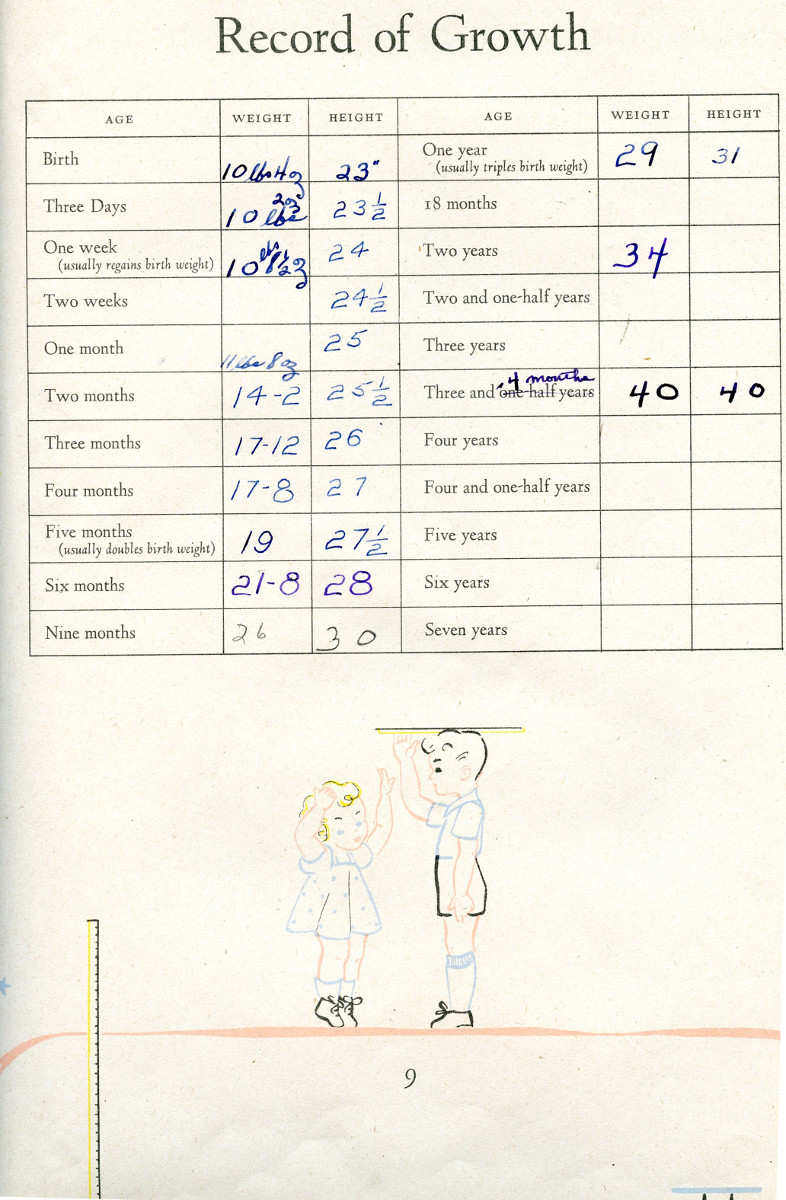 Record of Growth
AGE WEIGHT HEIGHT AGE WEIGHT HEIGHT
Birth 10 lbs 4 oz 23" One year 29 31
(usually triples birth weight)
Three Days 10 lbs 2 oz 23 1/2 18 months
One week 10 lbs 8 1/2 oz 24 Two years 34
(usually regains birth weight)
Two weeks 24 1/2 Two and one-half years
One month 11 lbs 8 oz 25 Three years
Two months 14-2 25 1/2 Three and one-half years 4 months 40 40
Three months 17-12 26 Four years
Four months 17-8 27 Four and one-half years
Five months 19 27 1/2 Five years
(usually doubles birth weight)
Six months 21-8 28 Six years
Nine months 26 30 Seven years
9